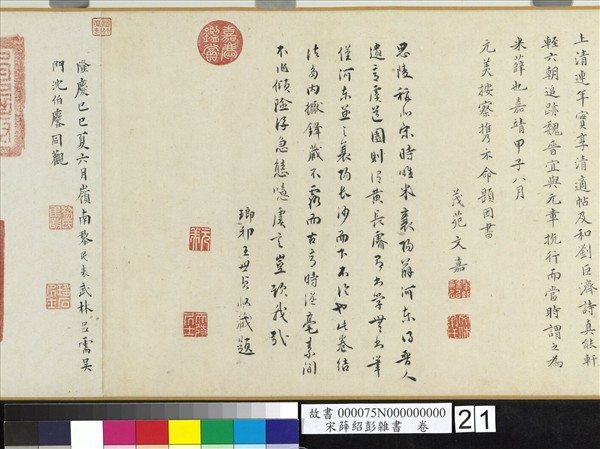 上清連年實享清適帖及和劉巨濟詩真能軒
輊六朝追跡魏晉宜與元章抗行而當時謂之為
米薛也嘉靖甲子八月
元美按察携示命題因書
茂苑文嘉
思陵稱小宋時唯米襄陽薛河東得晉人
遺意虞道園則謂黃長睿有書學無書筆
僅河東並之襄陽長沙而下不論也此卷結
法多內擫鋒藏不露而古意時溢毫素間
不作傾險浮急態噫虞之豈欺我哉
瑯邪王世貞收藏題
嘉慶鑑賞
隆慶己巳夏六月嶺南黎民表武林呂需吳
門沈伯麐同觀
故書 000075N000000000
宋薛紹彭雜書 卷
21